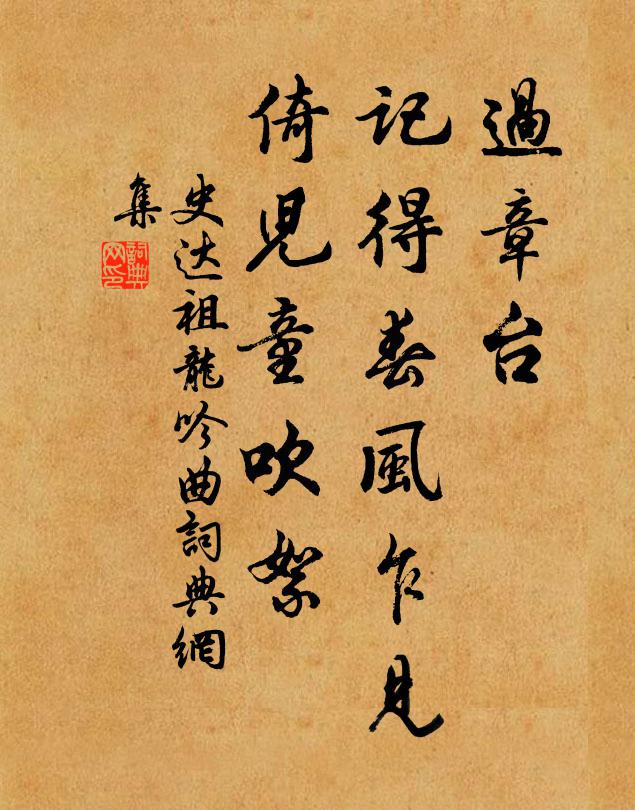 過章台
記得春風乍見
倚児童吹絮
史达祖龍吟曲詞典網
集
詞典
网印